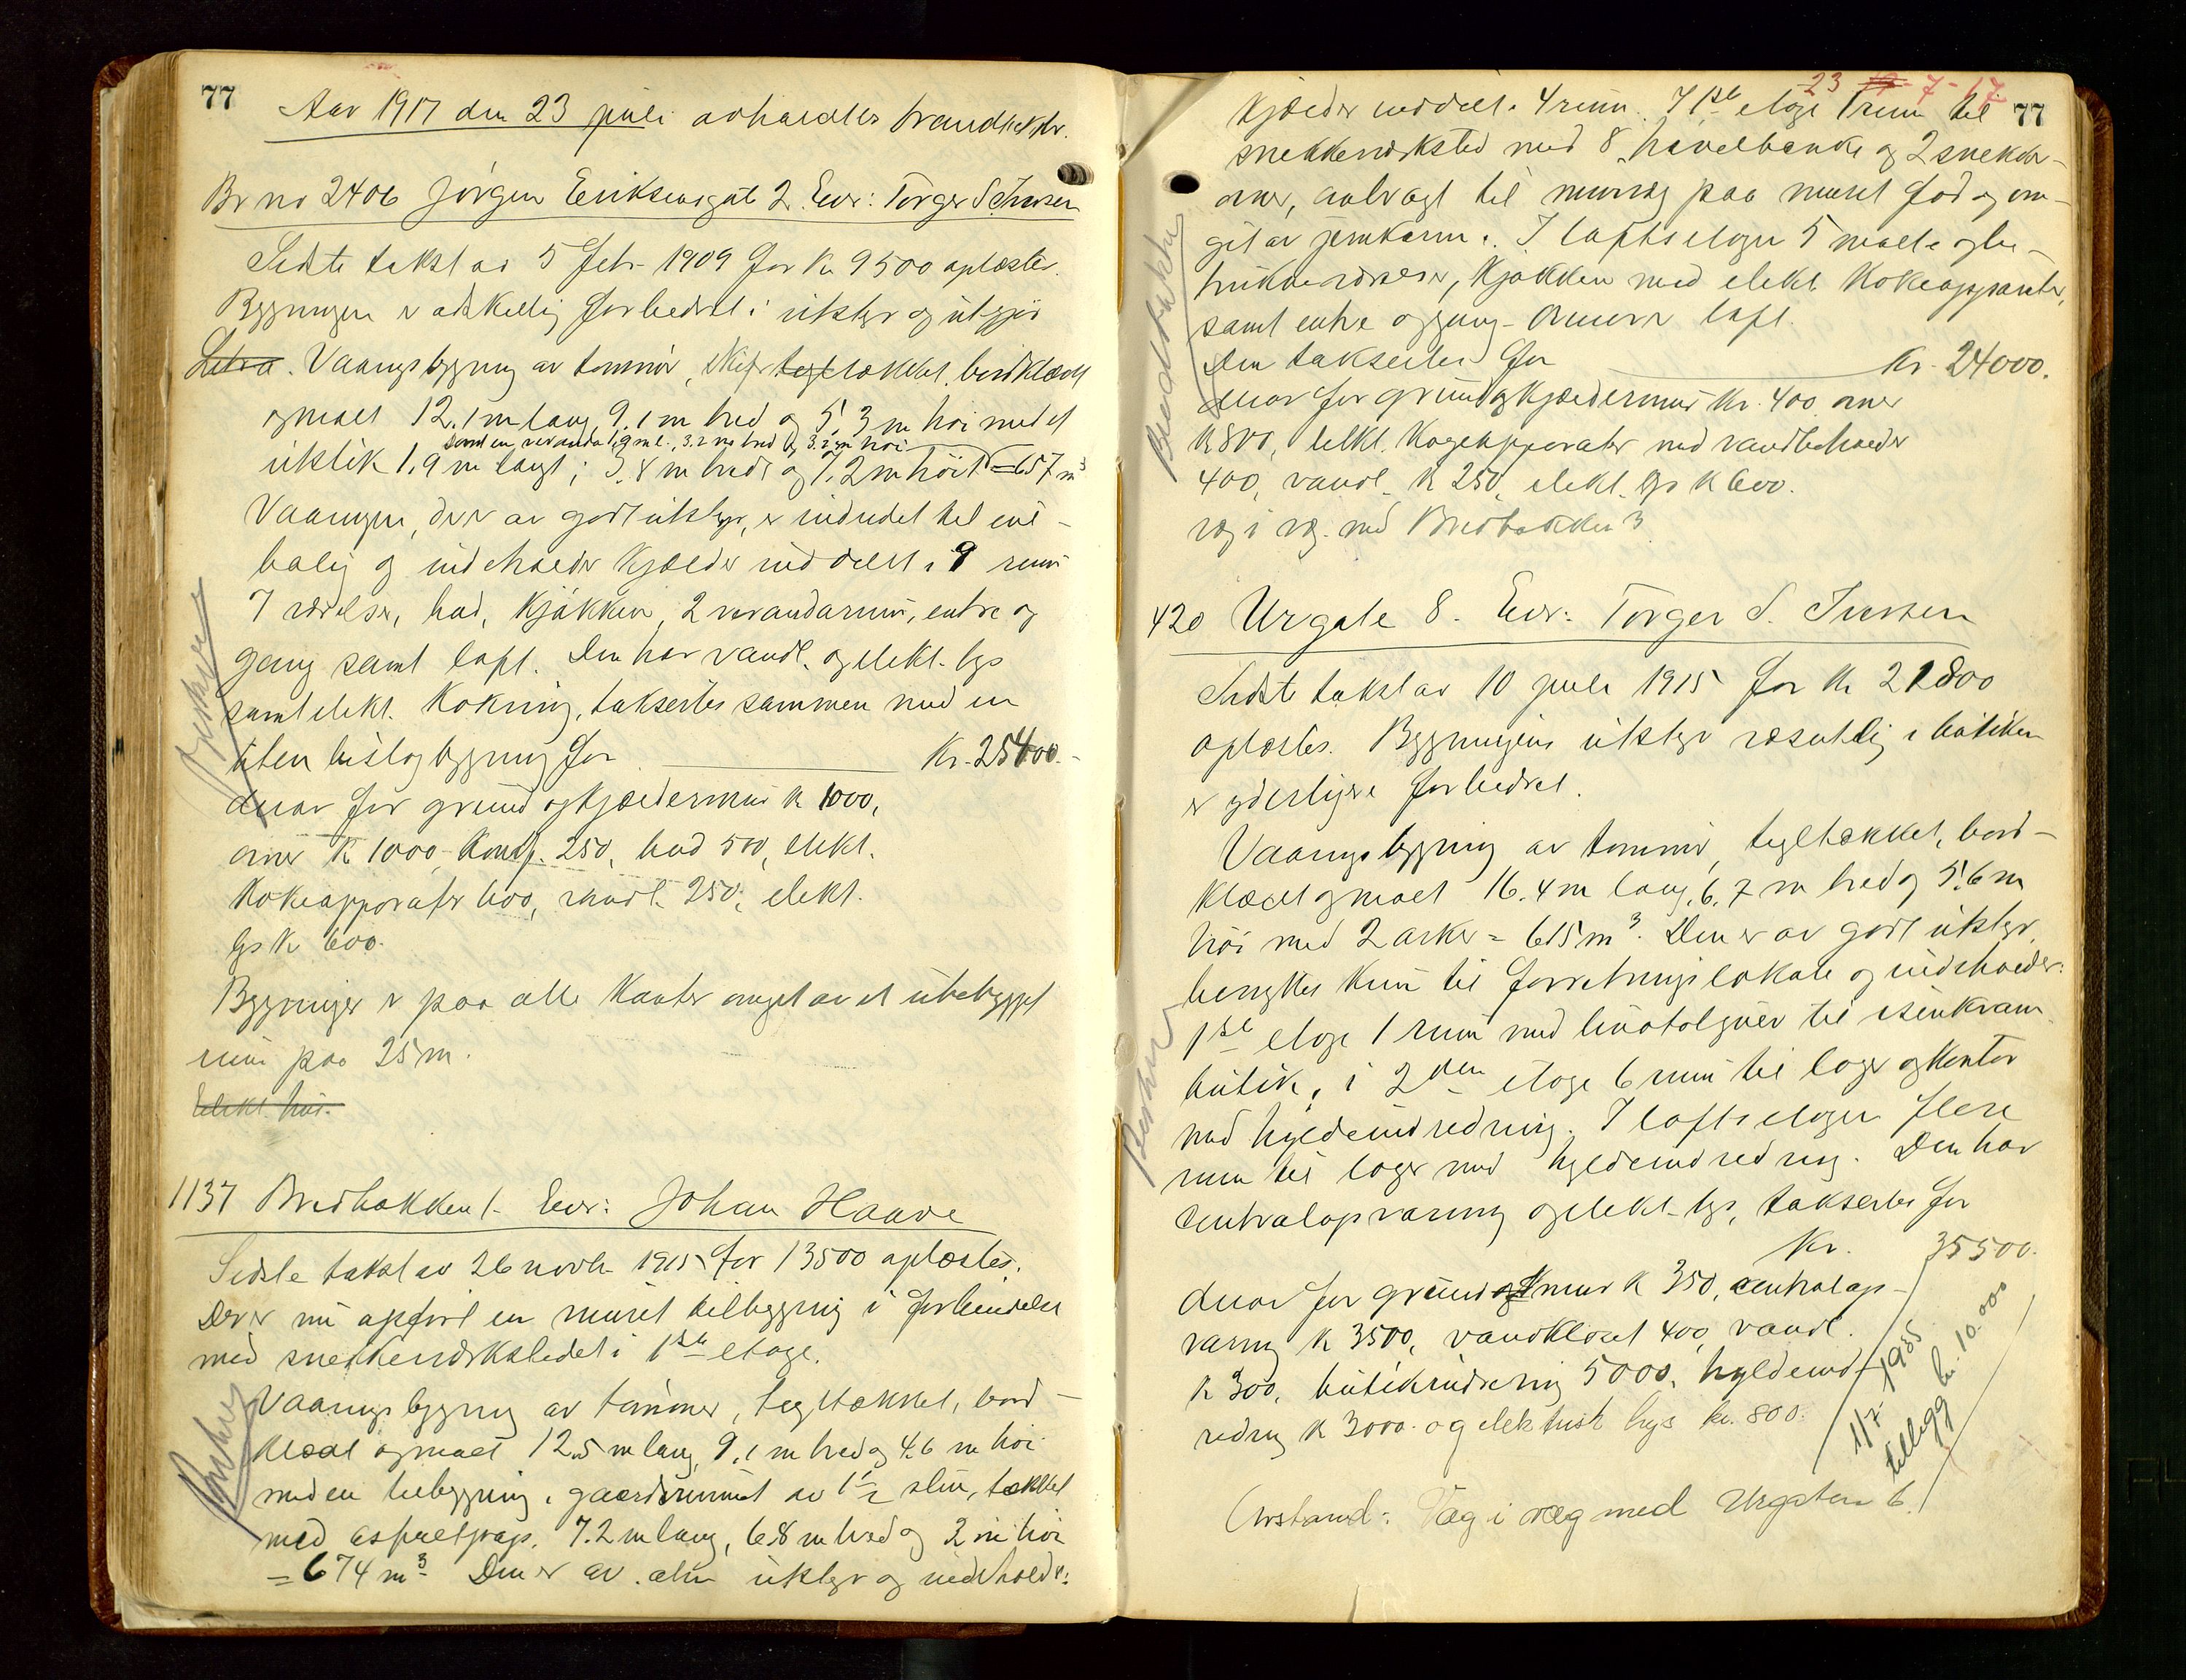 77
Aar 1917 den 23 juli avholdtes brandtakst.
Br no 2406 Jörgen Eriksensgt 2. Eier: Torger S. Iversen
Sidste takst av 5 febr 1909 for Kr 9500 oplæstes.
Bygningen er adskillig forbedret i utstyr og utgjör
Litra. Vaaningsbygning av tømmer, skifer tegltækket, bordklædt
og maalt 12.1 m lang, 9.1 m bred og 5.3 m høi med et
samt en veranda 1.9 m l., 3.2 m bred og 3.2 m høi
utstik 1.9 m langt, 3.8 m bredt og 7.2 m høit = 657 m³
Vaaningen, der er av godt utstyr, er indredet til ene-
bolig og indeholder kjælder inddelt i 9 rum
7 værelser, bad, kjøkken, 2 verandarum, entre og
gang samt loft. Den har vandl. og elekt. lys
samt elekt. kokning, takseres sammen med en
liten bislagbygning for Kr. 25400.-
derav for grund og kjældermur k 1000,
ovner k 1000, komf. 250, bad 500, elekt.
kokeapparater 600, vandl. 250, elekt.
lys k 600.
Bygninger er paa alle kanter omgit av et ubebygget
rum paa 25 m.
Elekt. hus.
1137 Bredbakken 1. Eier: Johan Haave
Sidste takst av 26 novbr 1915 for 13500 oplæstes.
Der er nu opført en muret tilbygning i forbindelse
med snekkerverkstedet i 1ste etage.
Vaaningsbygning av tømmer, tegltækket, bord-
klædt og maalt 12.5 m lang, 9.1 m bred og 4.6 m høi
med en tilbygning i gaardsrummet av 1/2 sten, tækket
med asfaltpap. 7.2 m lang, 6.8 m bred og 3 m høi
= 674 m³. Den er av alm utstyr og indeholder:
23 7-17
77
kjælder inddelt i 4 rum. I 1ste etage 1 rum til
snekkerverksted med 8 høvelbænke og 2 snekker-
ovner, anbragt til murvæg paa muret fod og om-
git av jernkarm. I loftsetagen 5 malte og be-
trukne værelser, kjøkken med elekt. kokeapparater,
samt entre og gang. Ovenover loft.
Den takseres for Kr. 24000.
derav for grund og kjældermur Kr. 400, ovner
k 800, elekt. kogeapparater med vandbeholder
400, vandl. k 250, elekt. lys k 600.
væg i væg med Bredbakken 3
420 Urgate 8. Eier: Torger S. Iversen
Sidste takst av 10 juli 1915 for Kr 21800
oplæstes. Bygningens utstyr væsentlig i butiken
er yderligere forbedret.
Vaaningsbygning av tømmer, tegltækket, bord-
klædt og maalt 16.4 m lang, 6.7 m bred og 5.6 m
høi med 2 arker = 615 m³. Den er av godt utstyr
benyttes kun til forretningslokale og indeholder:
1ste etage 1 rum med linotolgulv til isenkram
butik, i 2den etage 6 rum til lager og kontor
med hyldeindredning. I loftsetagen flere
rum til lager med hyldeindredning. Den har
centralopvarmng og elekt. lys, takseres for
Kr. 35500.
derav for grund og mur k 350, centralop-
varmng k 3500, vandkloset 400, vandl.
k 300, butikindredning 5000, hyldeind-
redng k 3000 og elektrisk lys kr. 800.
1/7 1935
tillegg kr. 10.000
Avstand: Væg i væg med Urgaten 6.